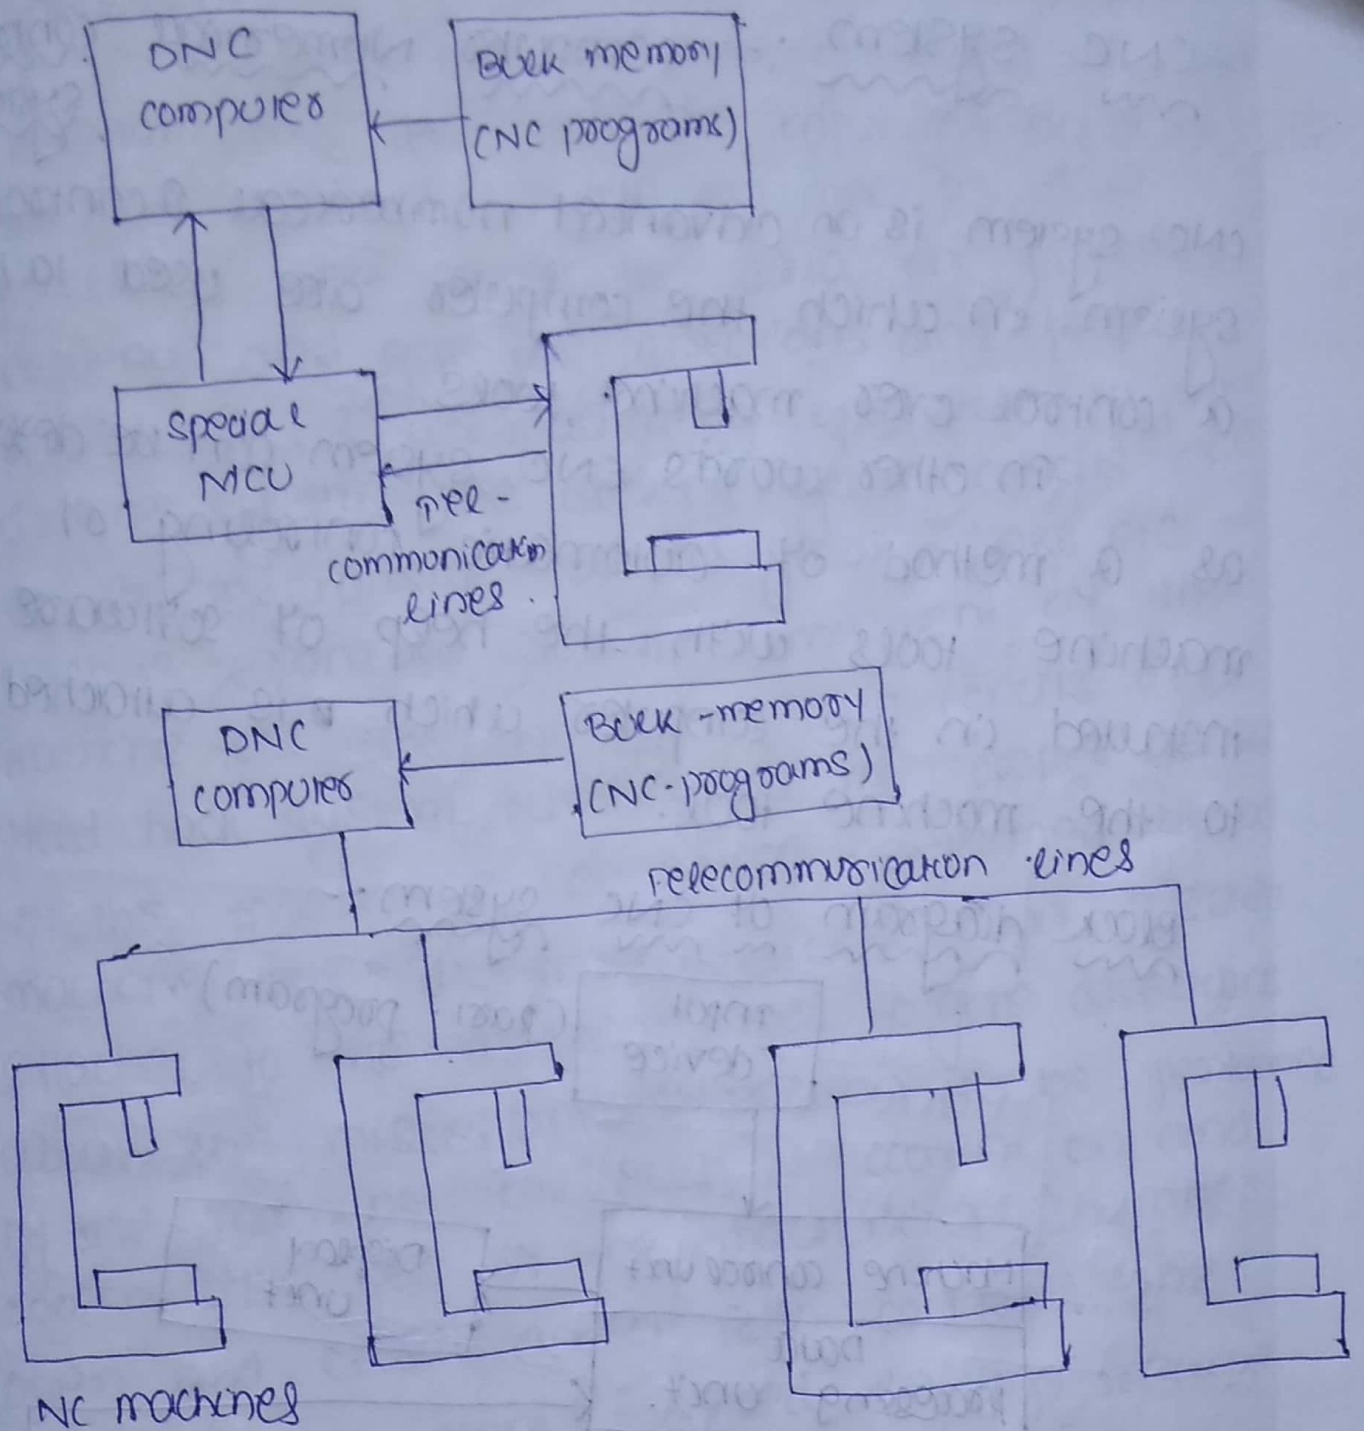 DNC
computer
Bulk memory
(NC programs)
special
MCU
Tele-
communication
lines.
DNC
computer
Bulk-memory
(NC-programs)
Telecommunication lines
NC machines